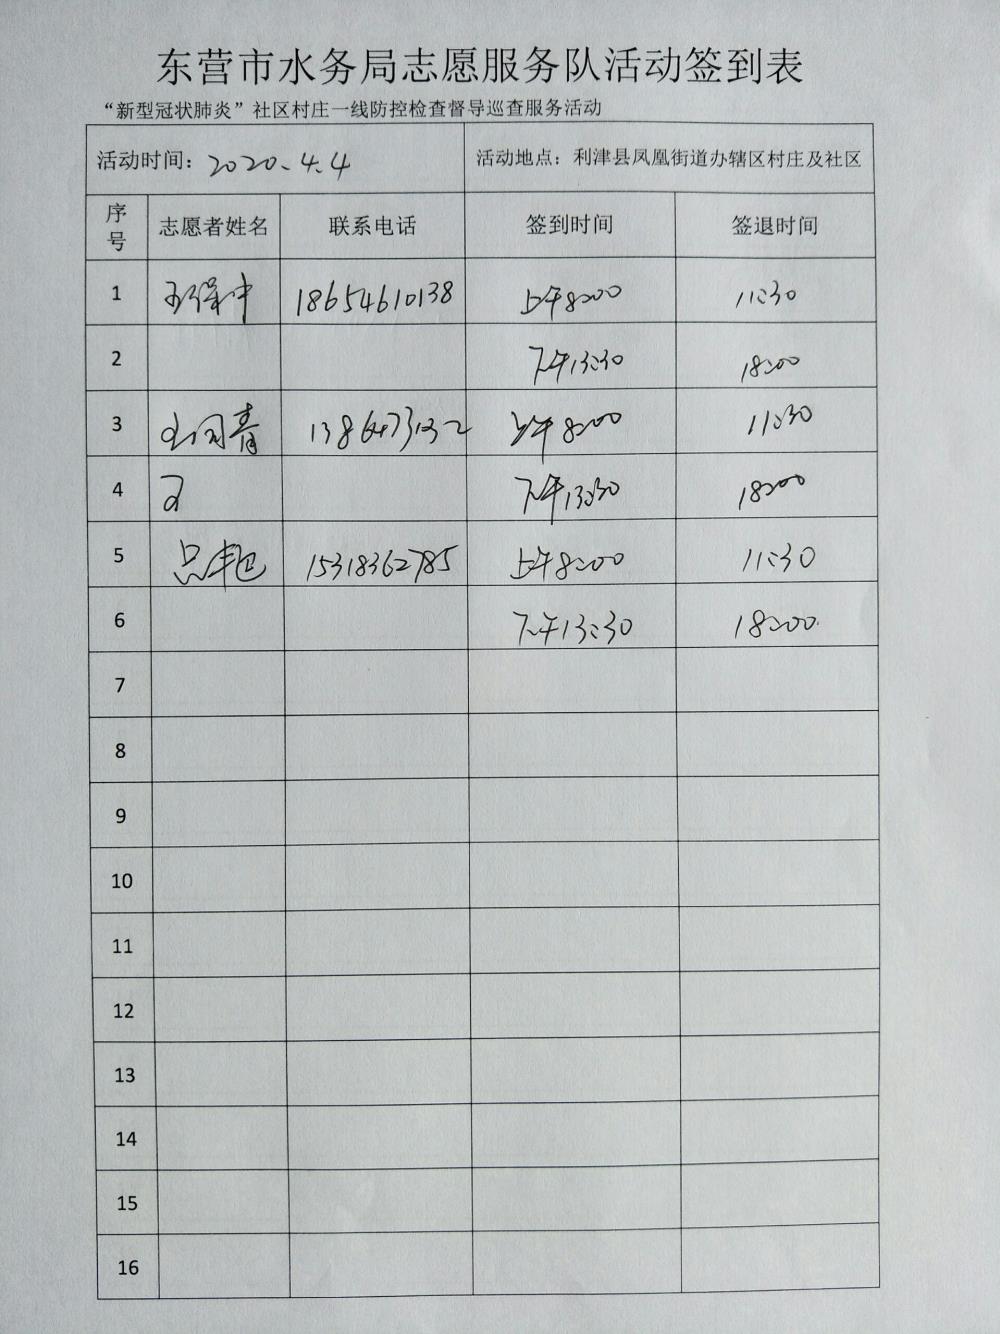 东营市水务局志愿服务队活动签到表
“新型冠状肺炎”社区村庄一线防控检查督导巡查服务活动
活动时间：2020.4.4 活动地点：利津县凤凰街道办辖区村庄及社区
序号 志愿者姓名 联系电话 签到时间 签退时间
1 王保中 18654610138 上午8:00 11:30
2 下午13:30 18:00
3 上午8:00 11:30
4 下午13:30 18:00
5 15318362785 上午8:00 11:30
6 下午13:30 18:00
7
8
9
10
11
12
13
14
15
16